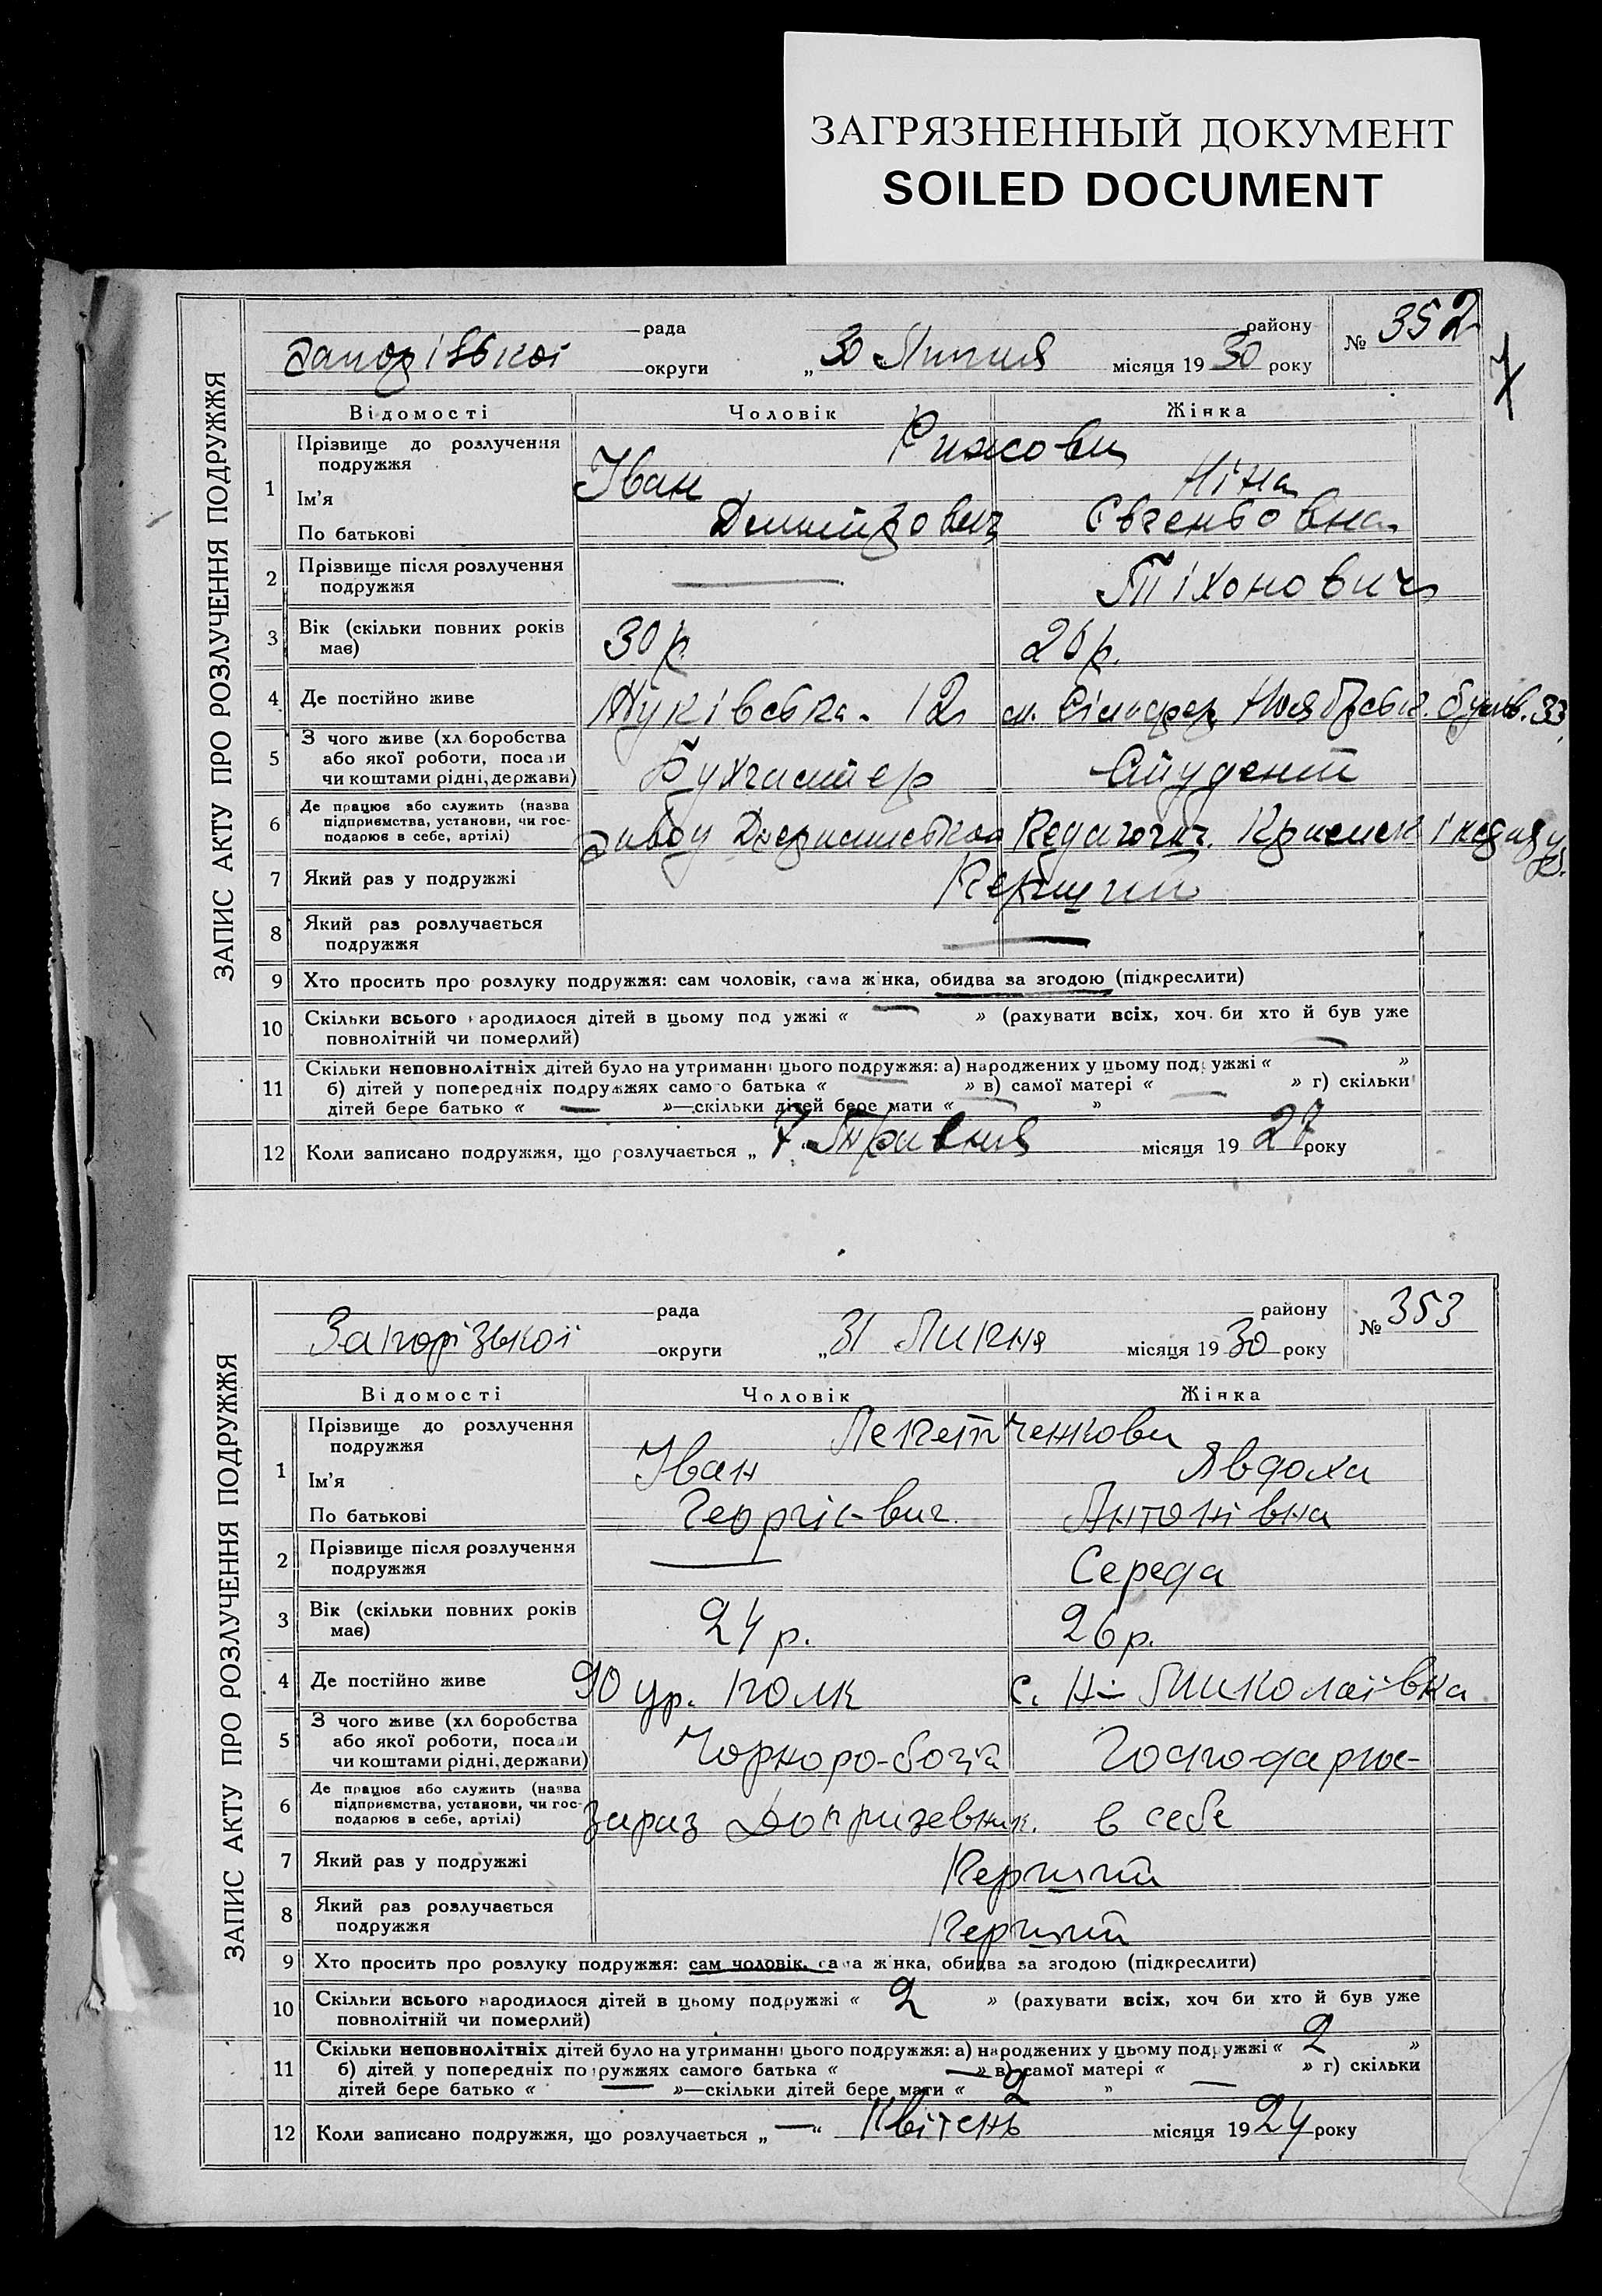 ЗАГРЯЗНЕННЫЙ ДОКУМЕНТ
SOILED DOCUMENT
ЗАПИС АКТУ ПРО РОЗЛУЧЕННЯ ПОДРУЖЖЯ
рада району
Запорізької округи „30 Липня місяця 1930 року № 352
Відомості Чоловік Жінка
1 Прізвище до розлучення подружжя Рижови
Ім'я Іван Ніна
По батькові Дмитрович Євгеньовна
2 Прізвище після розлучення подружжя — Тіхонович
3 Вік (скільки повних років має) 30 р. 26 р.
4 Де постійно живе Жуківська 12 м. Сімфер. бульв. 33
5 З чого живе (хліборобства або якої роботи, посади чи коштами рідні, держави) Бухгалтер Студент
6 Де працює або служить (назва підприємства, установи, чи господарює в себе, артілі) завод Педагогич.
7 Який раз у подружжі Перший
8 Який раз розлучається подружжя —
9 Хто просить про розлуку подружжя: сам чоловік, сама жінка, обидва за згодою (підкреслити)
10 Скільки всього народилося дітей в цьому подружжі « — » (рахувати всіх, хоч би хто й був уже
повнолітній чи померлий)
11 Скільки неповнолітніх дітей було на утриманні цього подружжя: а) народжених у цьому подружжі « — »
б) дітей у попередніх подружжях самого батька « — » в) самої матері « — » г) скільки
дітей бере батько « — »—скільки дітей бере мати « — »
12 Коли записано подружжя, що розлучається „ 7 “ Травня місяця 1927 року
ЗАПИС АКТУ ПРО РОЗЛУЧЕННЯ ПОДРУЖЖЯ
рада району
Запорізької округи „31 Липня місяця 1930 року № 353
Відомості Чоловік Жінка
1 Прізвище до розлучення подружжя Лепетченкови
Ім'я Іван Явдоха
По батькові Георгієвич Антонівна
2 Прізвище після розлучення подружжя — Середа
3 Вік (скільки повних років має) 24 р. 26 р.
4 Де постійно живе 90 ур. полк с. Н-Миколаївка
5 З чого живе (хліборобства або якої роботи, посади чи коштами рідні, держави) Чорноробочий Господарює
6 Де працює або служить (назва підприємства, установи, чи господарює в себе, артілі) зараз Допризевник. в себе
7 Який раз у подружжі Перший
8 Який раз розлучається подружжя Перший
9 Хто просить про розлуку подружжя: сам чоловік, сама жінка, обидва за згодою (підкреслити)
10 Скільки всього народилося дітей в цьому подружжі « 2 » (рахувати всіх, хоч би хто й був уже
повнолітній чи померлий)
11 Скільки неповнолітніх дітей було на утриманні цього подружжя: а) народжених у цьому подружжі « 2 »
б) дітей у попередніх подружжях самого батька « — » в) самої матері « — » г) скільки
дітей бере батько « — »—скільки дітей бере мати « 2 »
12 Коли записано подружжя, що розлучається „ — “ Квітень місяця 1924 року